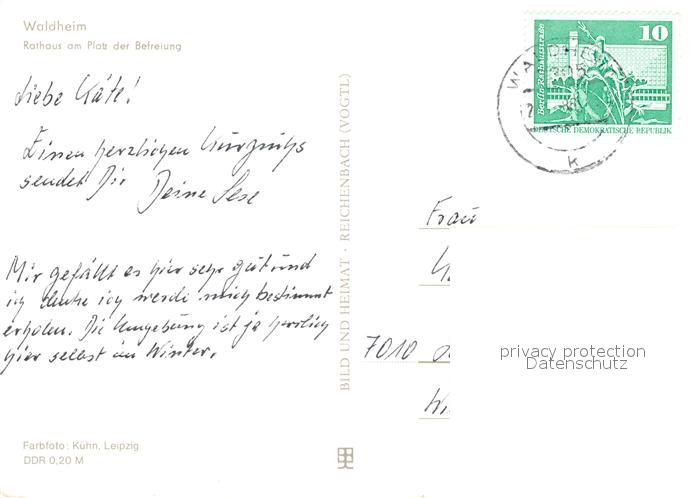 Waldheim
Rathaus am Platz der Befreiung
Liebe Käte!
Einen herzlichen Kurgruß
sendet Dir Deine
Mir gefällt es hier sehr gut und
ich denke ich werde mich bestimmt
erholen. Die Umgebung ist ja herrlich
hier selbst im Winter.
Farbfoto: Kühn, Leipzig
DDR 0,20 M
BILD UND HEIMAT · REICHENBACH (VOGTL)
10
Berlin, Rathausstraße
DEUTSCHE DEMOKRATISCHE REPUBLIK
WALDHEIM
k
Frau
7010
privacy protection
Datenschutz